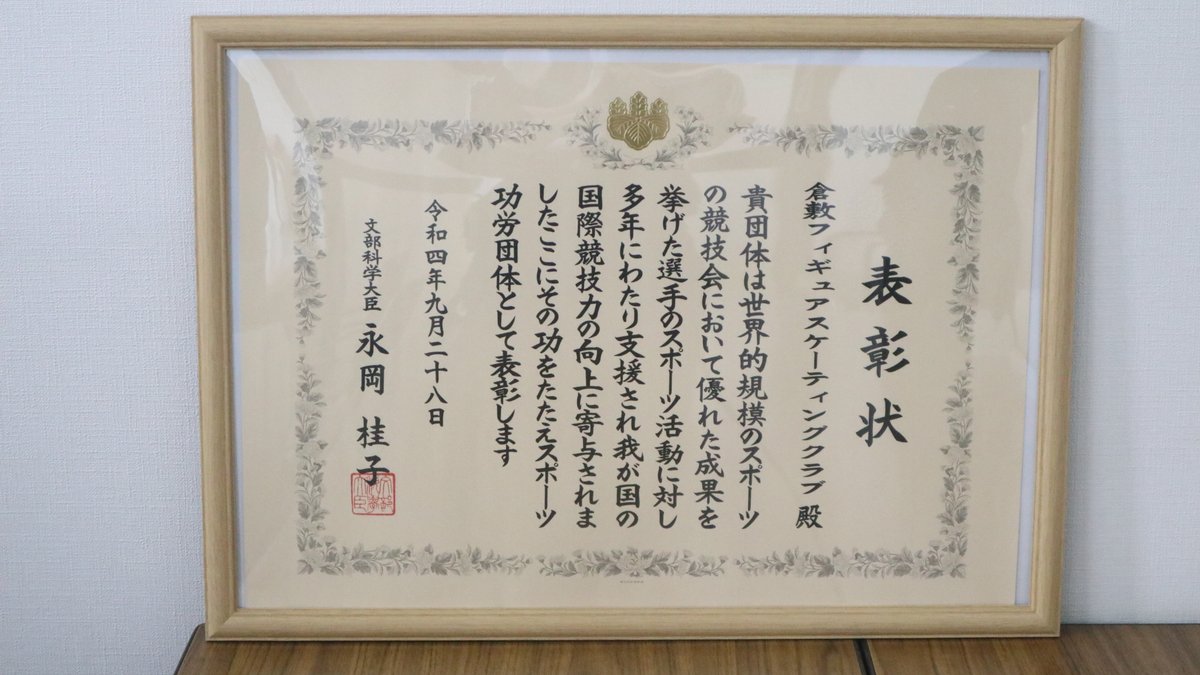 表彰状
倉敷フィギュアスケーティングクラブ 殿
貴団体は世界的規模のスポーツ
の競技会において優れた成果を
挙げた選手のスポーツ活動に対し
多年にわたり支援され我が国の
国際競技力の向上に寄与されま
したここにその功をたたえスポーツ
功労団体として表彰します
令和四年九月二十八日
文部科学大臣 永岡 桂子